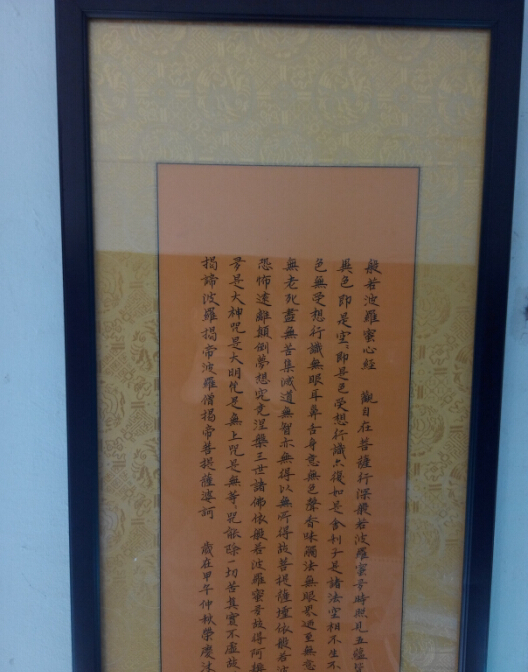 般若波羅蜜心經 觀自在菩薩行深般若波羅蜜多時照見五蘊皆
異色即是空空即是色受想行識亦復如是舍利子是諸法空相不生不
色無受想行識無眼耳鼻舌身意無色聲香味觸法無眼界迺至無意
無老死盡無苦集滅道無智亦無得以無所得故菩提薩埵依般若波
恐怖遠離顛倒夢想究竟涅槃三世諸佛依般若波羅蜜多故得阿耨
多是大神咒是大明咒是無上咒是無等咒能除一切苦真實不虛故
揭諦波羅揭帝波羅僧揭帝菩提薩婆訶 歲在甲午仲秋榮慶沐